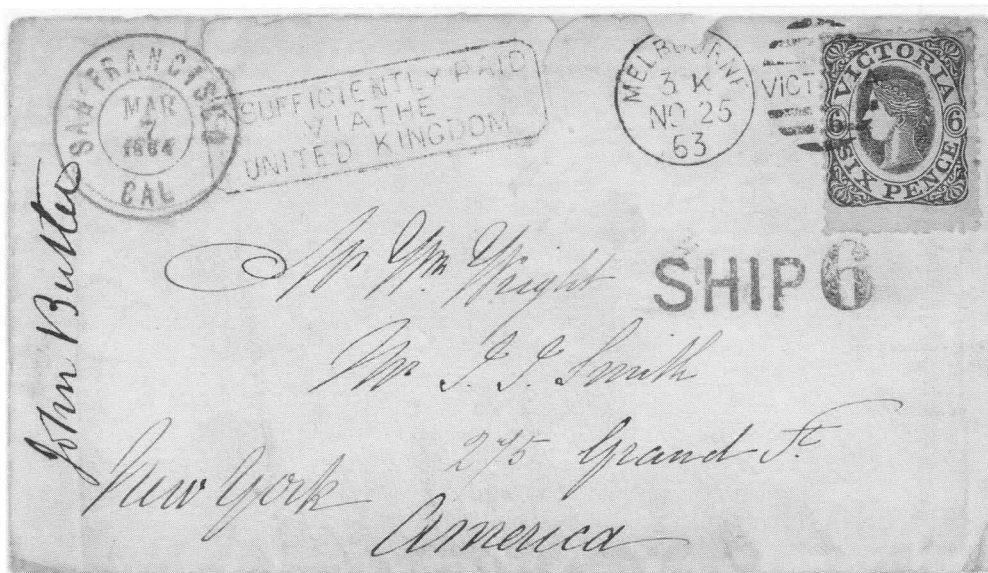 SAN FRANCISCO
MAR
7
1864
CAL
SUFFICIENTLY PAID
VIA THE
UNITED KINGDOM
MELBOURNE
3 K
NO 25
63
VICT
VICTORIA
6 6
SIX PENCE
SHIP 6
Mr Wm. Wright
Mr J. J. Smith
275 Grand St.
New York
America
John Butler